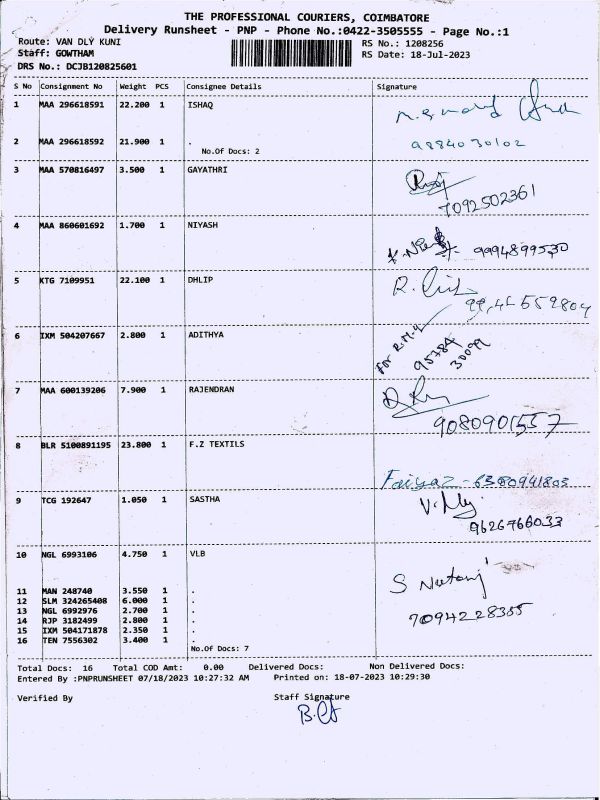 THE PROFESSIONAL COURIERS, COIMBATORE
Delivery Runsheet - PNP - Phone No.:0422-3505555 - Page No.:1
Route: VAN DLY KUNI RS No.: 1208256
Staff: GOWTHAM RS Date: 18-Jul-2023
DRS No.: DCJB120825601
S No Consignment No Weight PCS Consignee Details Signature
1 MAA 296618591 22.200 1 ISHAQ
2 MAA 296618592 21.900 1 . 9884030102
No.Of Docs: 2
3 MAA 570816497 3.500 1 GAYATHRI
7092502361
4 MAA 860601692 1.700 1 NIYASH
9994899530
5 KTG 7109951 22.100 1 DHLIP
6 IXM 504207667 2.800 1 ADITHYA
For R.M.4
95784
30099
7 MAA 600139206 7.900 1 RAJENDRAN
9080901557
8 BLR 5100891195 23.800 1 F.Z TEXTILS
Faiyaz - 6380941803
9 TCG 192647 1.050 1 SASTHA
9626766033
10 NGL 6993106 4.750 1 VLB
11 MAN 248740 3.550 1 .
12 SLM 324265408 6.000 1 .
13 NGL 6992976 2.700 1 .
14 RJP 3182499 2.800 1 .
15 IXM 504171878 2.350 1 .
16 TEN 7556302 3.400 1 .
7094228355
No.Of Docs: 7
Total Docs: 16 Total COD Amt: 0.00 Delivered Docs: Non Delivered Docs:
Entered By :PNPRUNSHEET 07/18/2023 10:27:32 AM Printed on: 18-07-2023 10:29:30
Verified By Staff Signature